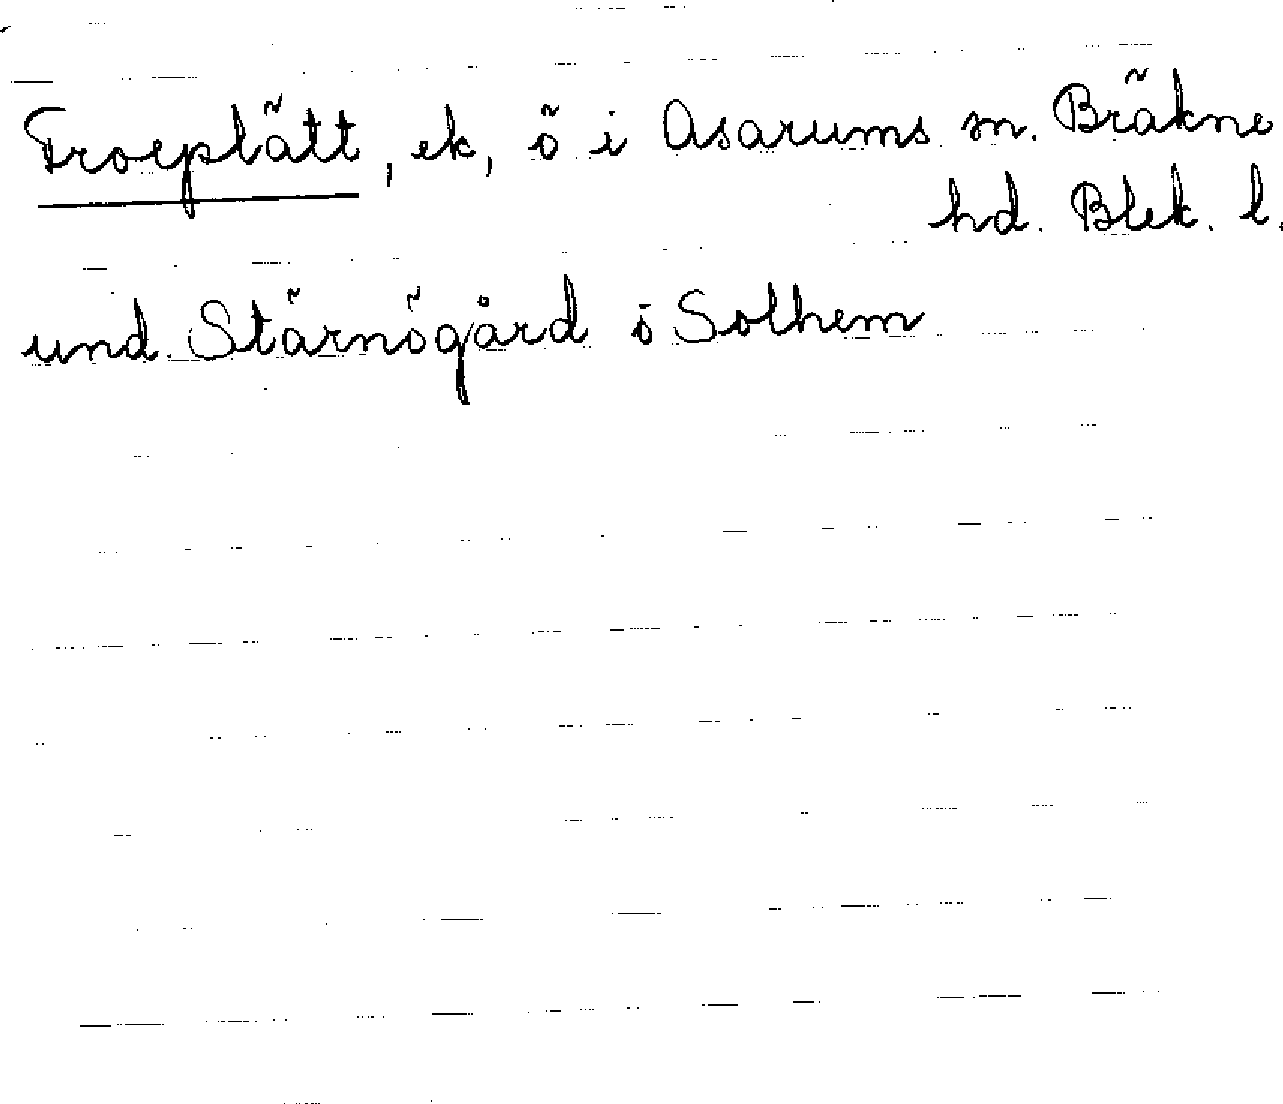 Troeplätt, ek, ö i Asarums sn. Bräkne
hd. Blek. l.
und. Stärnögård o Solhem